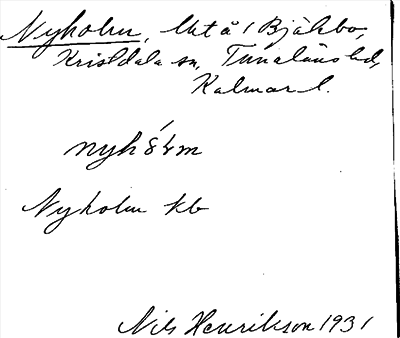 Nyholm, lht å 1 Bjälebo,
Kristdala sn, Tunaläns hd,
Kalmar l.
nyhå´lm
Nyholm kb
Nils Henrikson 1931